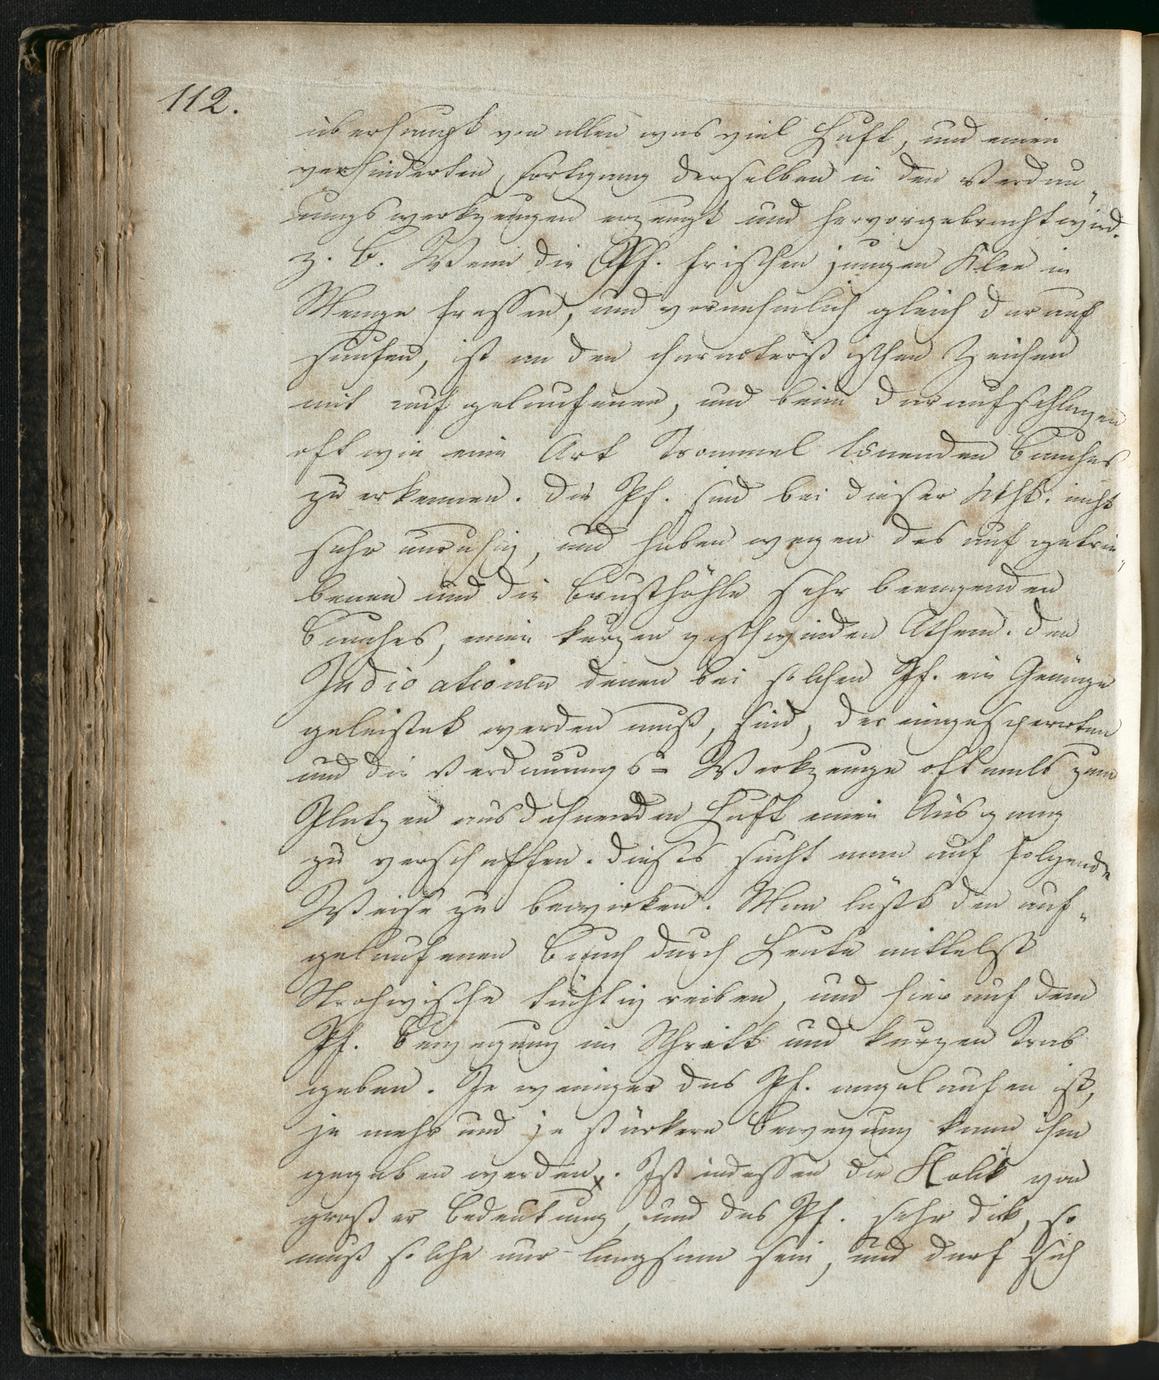 112.
überhaupt von allen was viel Luft, und einen
verhinderten Fortgang derselben in den Verdau-
ungswerkzeugen erzeugt und hervorgebracht wird.
z. B. Wenn die Pf. frischen jungen Klee in
Menge fressen, und vornehmlich gleich darauf
saufen, ist an den charackteristischen Zeichen
mit aufgelaufenen, und beim daraufschlagen
oft wie eine Art Trommel tönenden Bauches
zu erkennen. Die Pf. sind bei dieser nicht
sehr unruhig, und haben wegen des aufgetrie-
benen und die Brusthöhle sehr beengenden
Bauches, einen kurzen geschwinden Athem. Den
Indicationen denen bei solchen Pf. ein Genüge
geleistet werden muß, sind, der eingesperrten
und die Verdauungs= Werkzeuge oftmals zum
Platzen ausdehnenden Luft einen Ausgang
zu verschaffen. Dieses sucht man auf folgende
Weise zu bewirken. Man läßt den auf-
gelaufenen Bauch durch Leute mittelst
Strohwische tüchtig reiben, und hierauf dem
Pf. Bewegung im Schritt und kurzen Trab
geben. Je weniger das Pf. angelaufen ist,
je mehr und je stärkere Bewegung kann ihm
gegeben werden. Ist indessen die Kolik von
großer Bedeutung, und das Pf. sehr dik, so
muß solche nur langsam sein, und darf sich